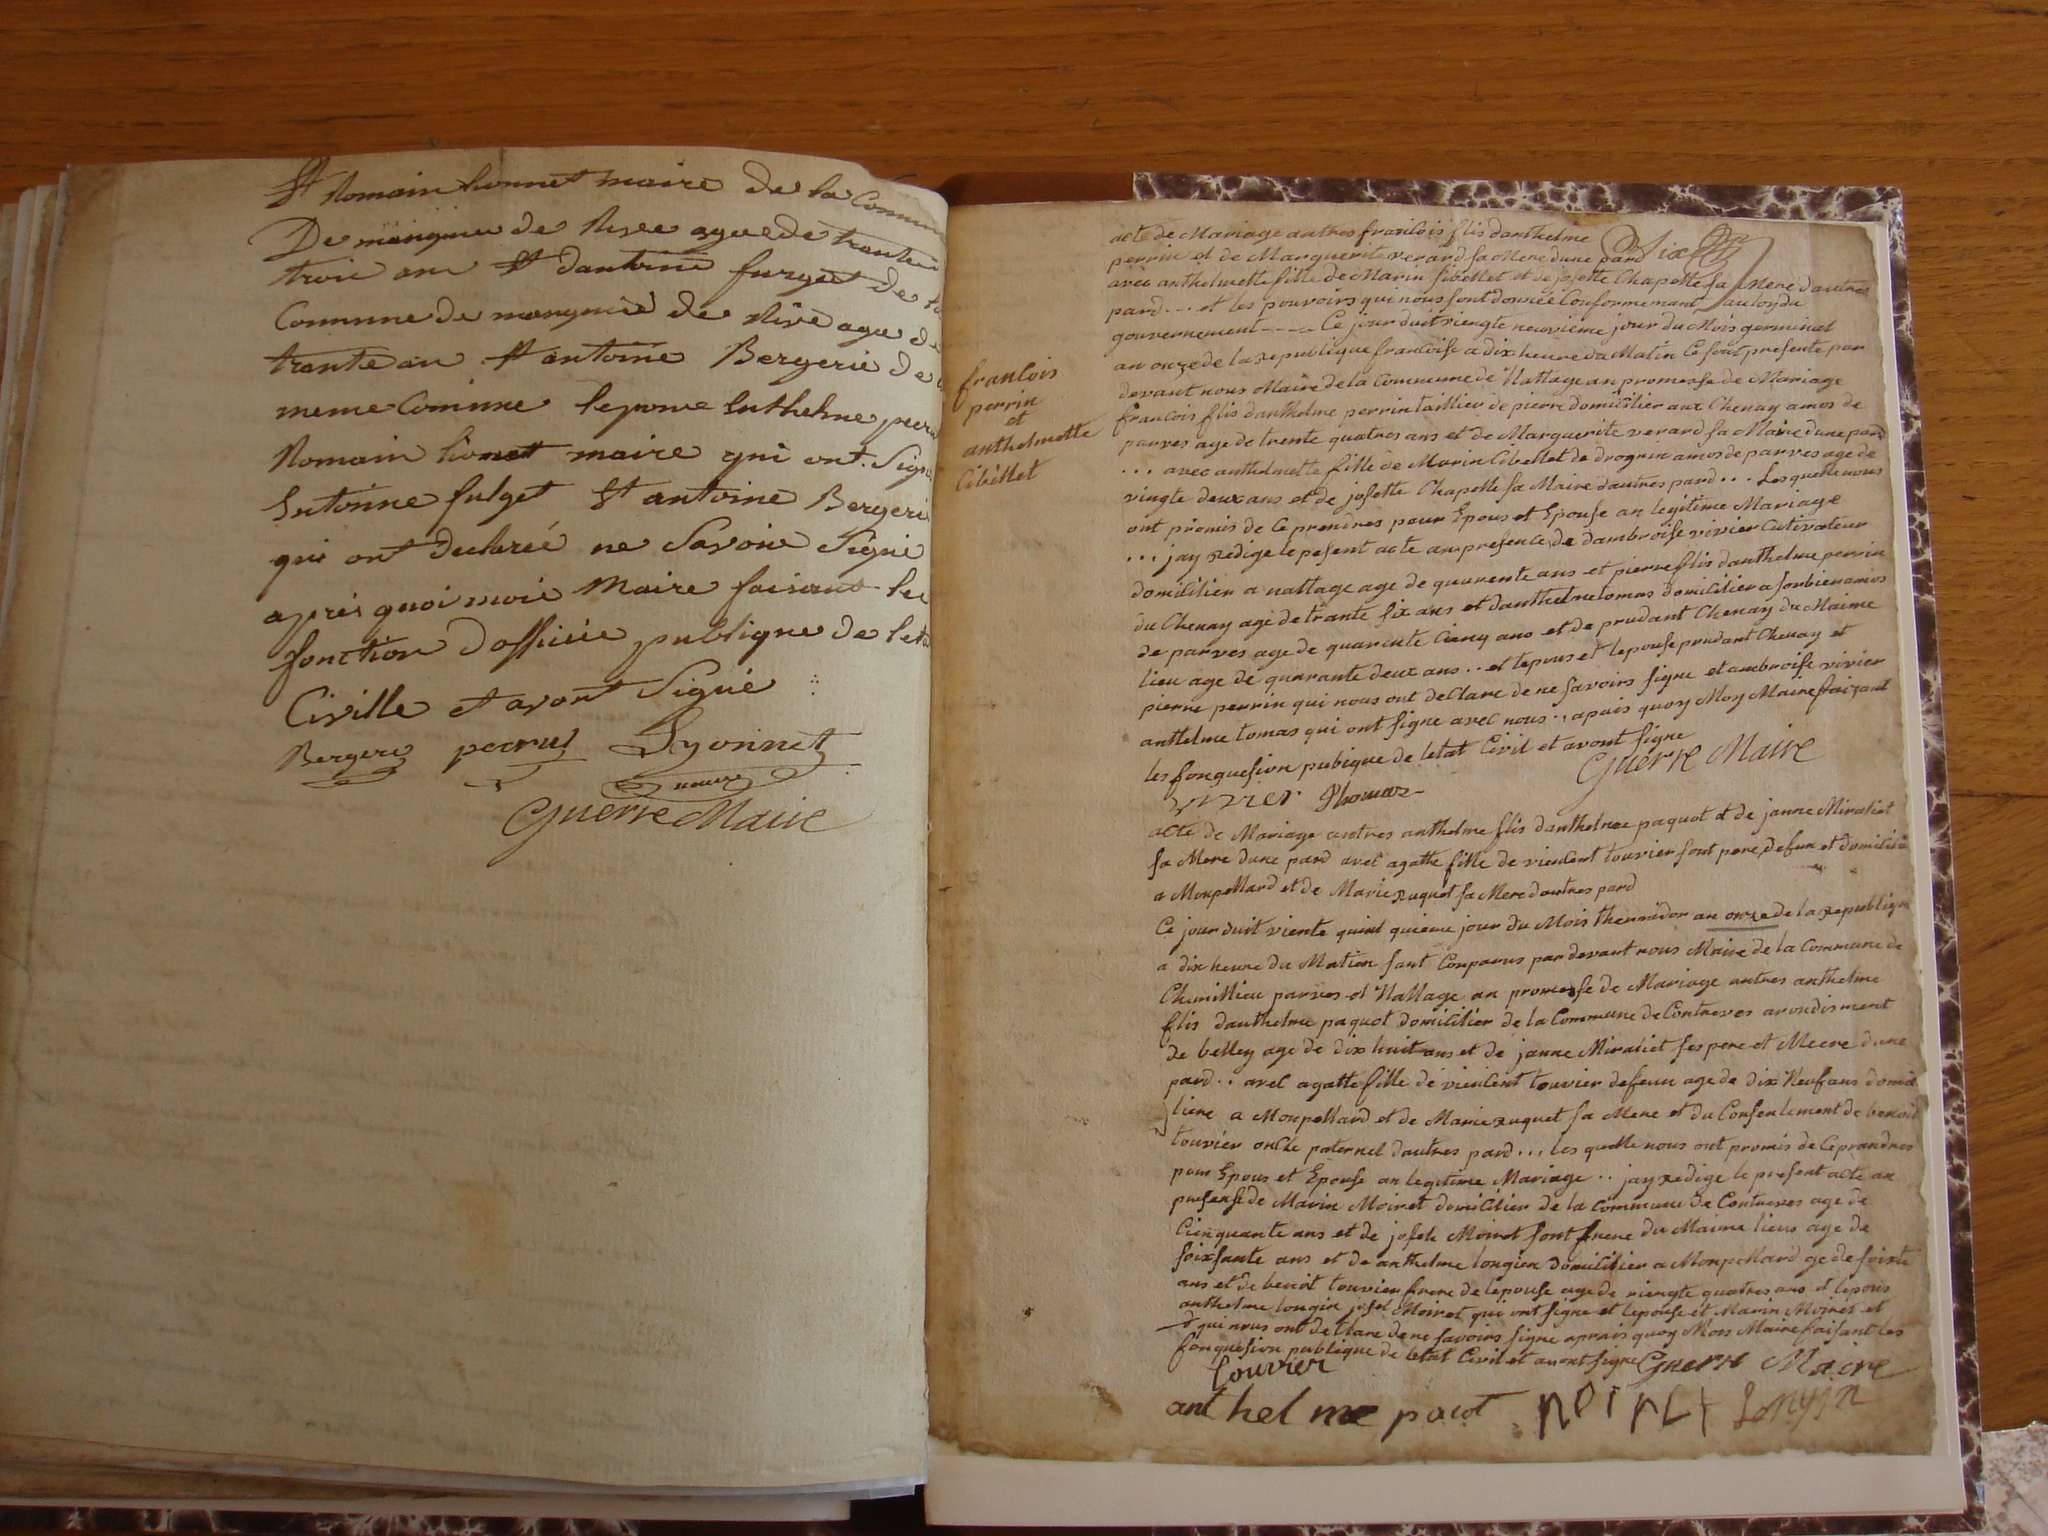 St Romain lionnet maire de la Commun
De mongnieu de Rive agee de trante
troie an St dantoine furget de la
Commune de mongnieu de Rive age de
trante an St antoine Bergerie de l
meme Comune lepouse Enthelme perru
Romain lionet maire qui ont Signé
Entoinne fulget St antoine Bergerie
qui ont declareé ne Savoir Signé
aprés quoi moié Maire faisant les
fonction d'officié publique de leta
Civille et avont Signé
Bergere perrus Lyonnet
maire
Guerre Maire
françois
perrin
et
anthelmette
Cibellet
acte de Mariage autres françois flis danthelme
perrin et de Marguerite verard sa Mere dune pard
avec anthelmette fille de Marin sibellet et de josette Chapelle sa Mere dautres
pard... et les pouvoirs qui nous sont donneé Conformemant au loy du
gouvernement ---- Ce jour duit viengte neuvieme jour du Mois germinal
an onze de la republique francoise a dix heure du Matin Ce sont presente par
devant nous Maire de la Commune de Nattage an promesse de Mariage
francois flis danthelme perrin taillieur de pierre domicilier aux Chenay amos de
parves age de trente quatres ans et de Marguerite verard sa Maire dune pard
... avec anthelmette fille de Marin Cibellet de drognin amos de parves age de
vingte deux ans et de josette Chapelle sa Maire dautres pard... Lesquelle nous
ont promis de Ce prendres pour Epous et Epouse an legitime Mariage
... jay redige le pesent acte an presence de dambroise vivier Cutivateur
domicilien a nattage age de quarente ans et pierre flis danthelme perrin
du Chenay age de trante six ans et danthelme tomas domicilier a sorbier amos
de parves age de quarente Cienq ans et de prudant Chenay du Maime
lieu age de quarante deux ans .. et lepous et lepouse prudant Chenay et
pierre perrin qui nous ont declare de ne savoirs signe et ambroise vivier
anthelme tomas qui ont signe avec nous .. apuis quoy Moy Maire faizant
les fonquesion pubique de letat Civil et avont signe
Guerre Maire
vivier Thomas
acte de Mariage autres anthelme flis danthelme paquot et de janne Miraliet
sa Mere dune pard avec agathe fille de vienlent touvier sont pere defun et domicilié
a Monpellard et de Marie ruquet sa Mere dautres pard
Ce jour duit viente quint quieme jour du Mois thermidor an onze de la republique
a dix heure du Matien sant Conparus par devant nous Maire de la Commune de
Chemilliau parves et Nattage an promesse de Mariage antres anthelme
flis danthelme paquot domicilier de la Commune de Contreves arondisment
de belley age de dix huit ans et de janne Miraliet ses pere et Meere dune
pard .. avec agatte fille de vienlent touvier defeun age de dix Neuf ans domici
liere a Monpellard et de Marie ruquet sa Mere et du Consentement de benoit
touvier oncle paternel dautres pard... les quelle nous ont promis de Ce prandres
pour Epous et Epouse an legitime Mariage .. jay redige le present acte an
presense de Marin Moiret domicilier de la Commune de Contreves age de
Cienquante ans et de josete Moiret sont frere du Maime lieus age de
soixsante ans et de anthelme longien domicilier a Monpellard ge de soixte
ans et de benoit touvier frere de lepouse age de viengte quatres ans et lepous
anthelme longin josef Moiret qui ont signe et lepouse et Marin Moiret et
qui nous ont declare de ne savoirs signe aprais quoy Mois Maire faisant les
fonquesion publique de letat Civil et avont signe Guerre Maire
touvier
ant hel me pacot Moiret Longin